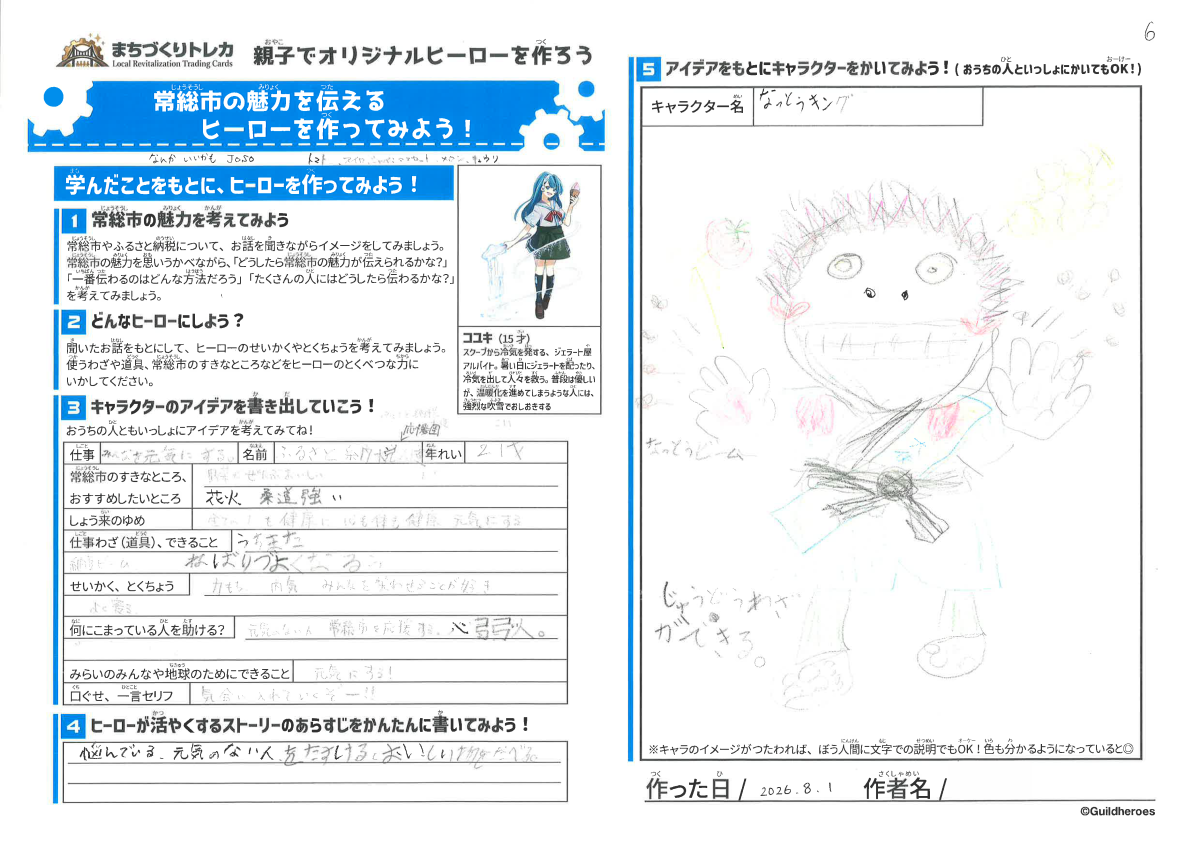 6
まちづくりトレカ
Local Revitalization Trading Cards
親子でオリジナルヒーローを作ろう
常総市の魅力を伝える
ヒーローを作ってみよう！
なんか いいかも JOSO トマト メロン きゅうり
学んだことをもとに、ヒーローを作ってみよう！
1 常総市の魅力を考えてみよう
常総市やふるさと納税について、お話を聞きながらイメージをしてみましょう。
常総市の魅力を思いうかべながら、「どうしたら常総市の魅力が伝えられるかな？」
「一番伝わるのはどんな方法だろう」「たくさんの人にはどうしたら伝わるかな？」
を考えてみましょう。
2 どんなヒーローにしよう？
聞いたお話をもとにして、ヒーローのせいかくやとくちょうを考えてみましょう。
使うわざや道具、常総市のすきなところなどをヒーローのとくべつな力に
いかしてください。
ココキ（15才）
スクープから冷気を発する、ジェラート屋
アルバイト。暑い日にジェラートを配ったり、
冷気を出して人々を救う。普段は優しい
が、温暖化を進めてしまうような人には、
強烈な吹雪でおしおきする
3 キャラクターのアイデアを書き出していこう！
おうちの人ともいっしょにアイデアを考えてみてね！
仕事 みんなを元気にする。 名前 ふるさと 年れい 21才
常総市のすきなところ、
おすすめしたいところ 花火 柔道強い
しょう来のゆめ 健康に 元気にする
仕事わざ（道具）、できること うちまた
ビーム ねばりづよく
せいかく、とくちょう 力もち 内気 みんなを笑わせることが好き
何にこまっている人を助ける？ 元気のない人 常総市を応援する。心弱い人。
みらいのみんなや地球のためにできること 元気にする！
口ぐせ、一言セリフ 気合い入れていくぞー!!
4 ヒーローが活やくするストーリーのあらすじをかんたんに書いてみよう！
悩んでいる、元気のない人をたすける、おいしい物をたべる
5 アイデアをもとにキャラクターをかいてみよう！（おうちの人といっしょにかいてもOK！）
キャラクター名 なっとうキング
なっとうビーム
じゅうどうわざ
ができる。
※キャラのイメージがつたわれば、ぼう人間に文字での説明でもOK！色も分かるようになっていると◎
作った日 / 2026.8.1 作者名 /
©Guildheroes